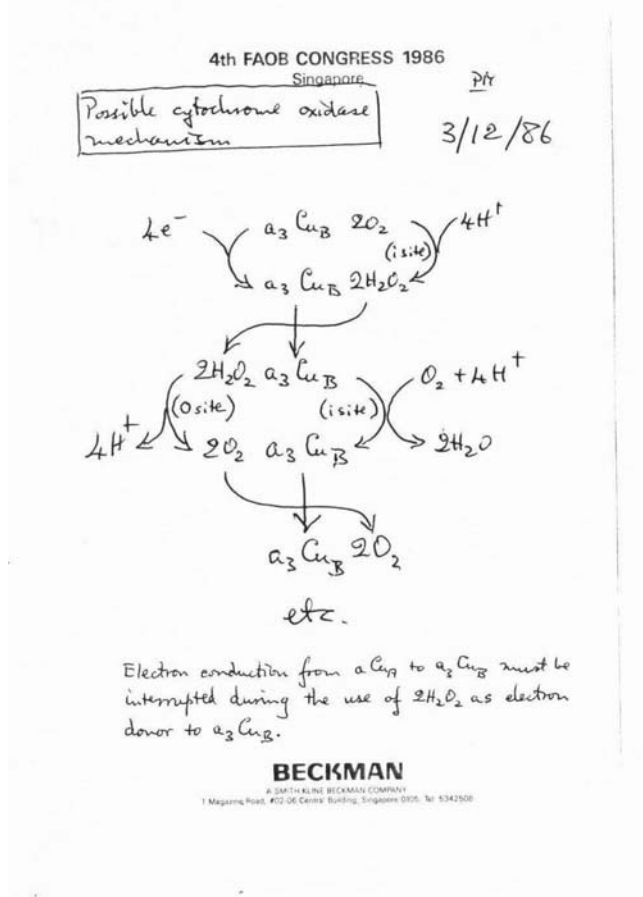 4th FAOB CONGRESS 1986
Singapore
PM
Possible cytochrome oxidase
mechanism
3/12/86
4e⁻ a₃ Cu_B 2O₂ 4H⁺
(i site)
a₃ Cu_B 2H₂O₂
2H₂O₂ a₃ Cu_B O₂ + 4H⁺
(O site) (i site)
4H⁺ 2O₂ a₃ Cu_B 2H₂O
a₃ Cu_B 2O₂
etc.
Electron conduction from a Cu_A to a₃ Cu_B must be
interrupted during the use of 2H₂O₂ as electron
donor to a₃ Cu_B.
BECKMAN
A SMITHKLINE BECKMAN COMPANY
1 Magazine Road, #02-06 Central Building, Singapore 0105. Tel: 5342508